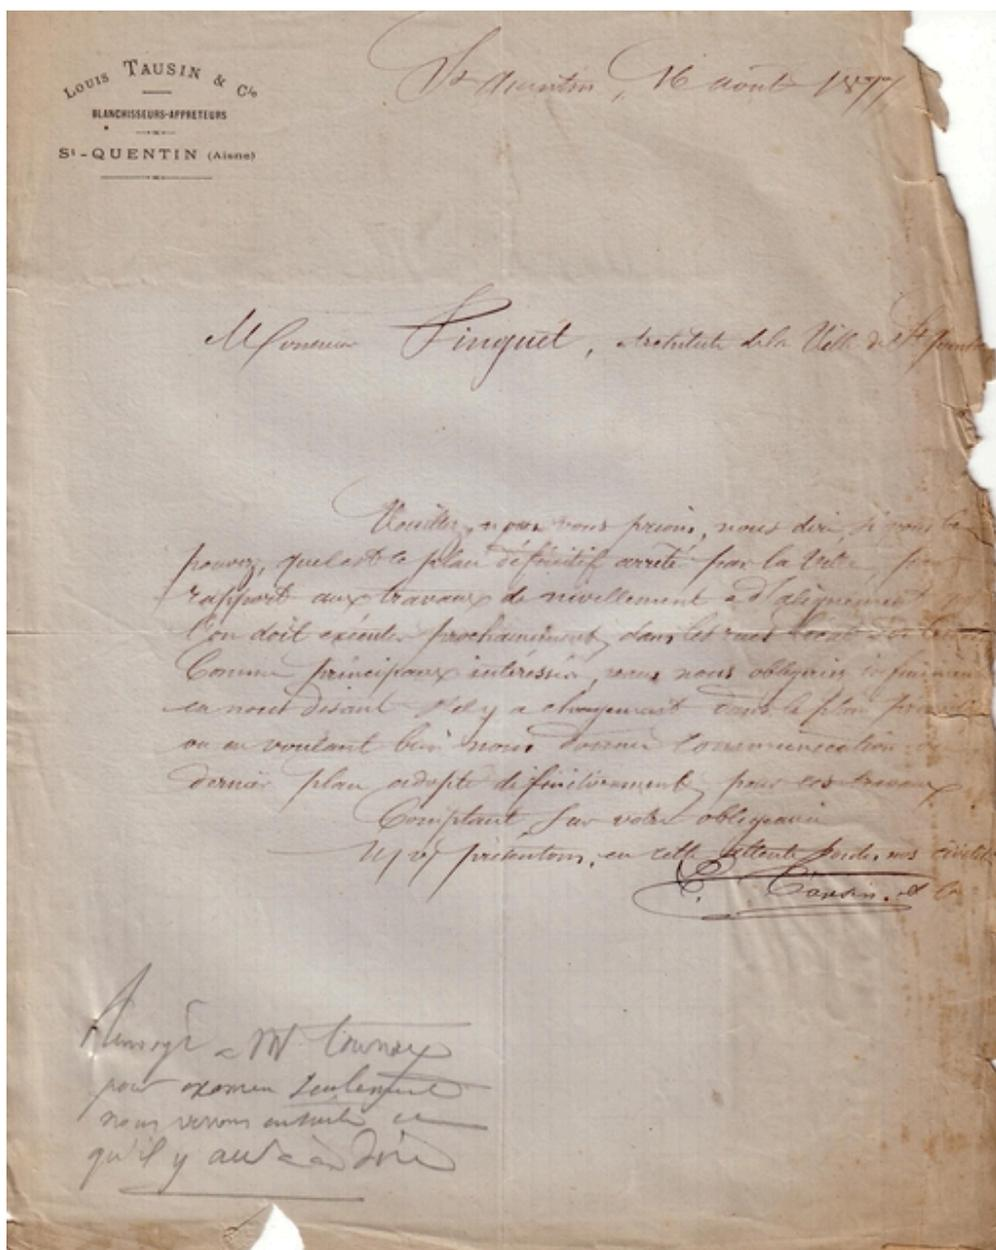 LOUIS TAUSIN & Cie
BLANCHISSEURS-APPRETEURS
St-QUENTIN (Aisne)
St Quentin, 16 août 1877
Monsieur Pinguet, Architecte de la Ville de St Quentin
Veuillez, nous vous prions, nous dire, si vous le
pouvez, quel est le plan définitif arrêté par la Ville, par
rapport aux travaux de nivellement & d'alignement que
l'on doit exécuter prochainement, dans les rues
Comme principaux intéressés, vous nous obligerez infiniment
en nous disant s'il y a changement dans le plan
ou en voulant bien nous donner communication du
dernier plan adopté définitivement pour ces travaux
Comptant sur votre obligeance
présentons, en cette attente, nos civilités
Tausin & Cie
Renvoyé à Mr
pour examen seulement
nous verrons ensuite ce
qu'il y aura à dire